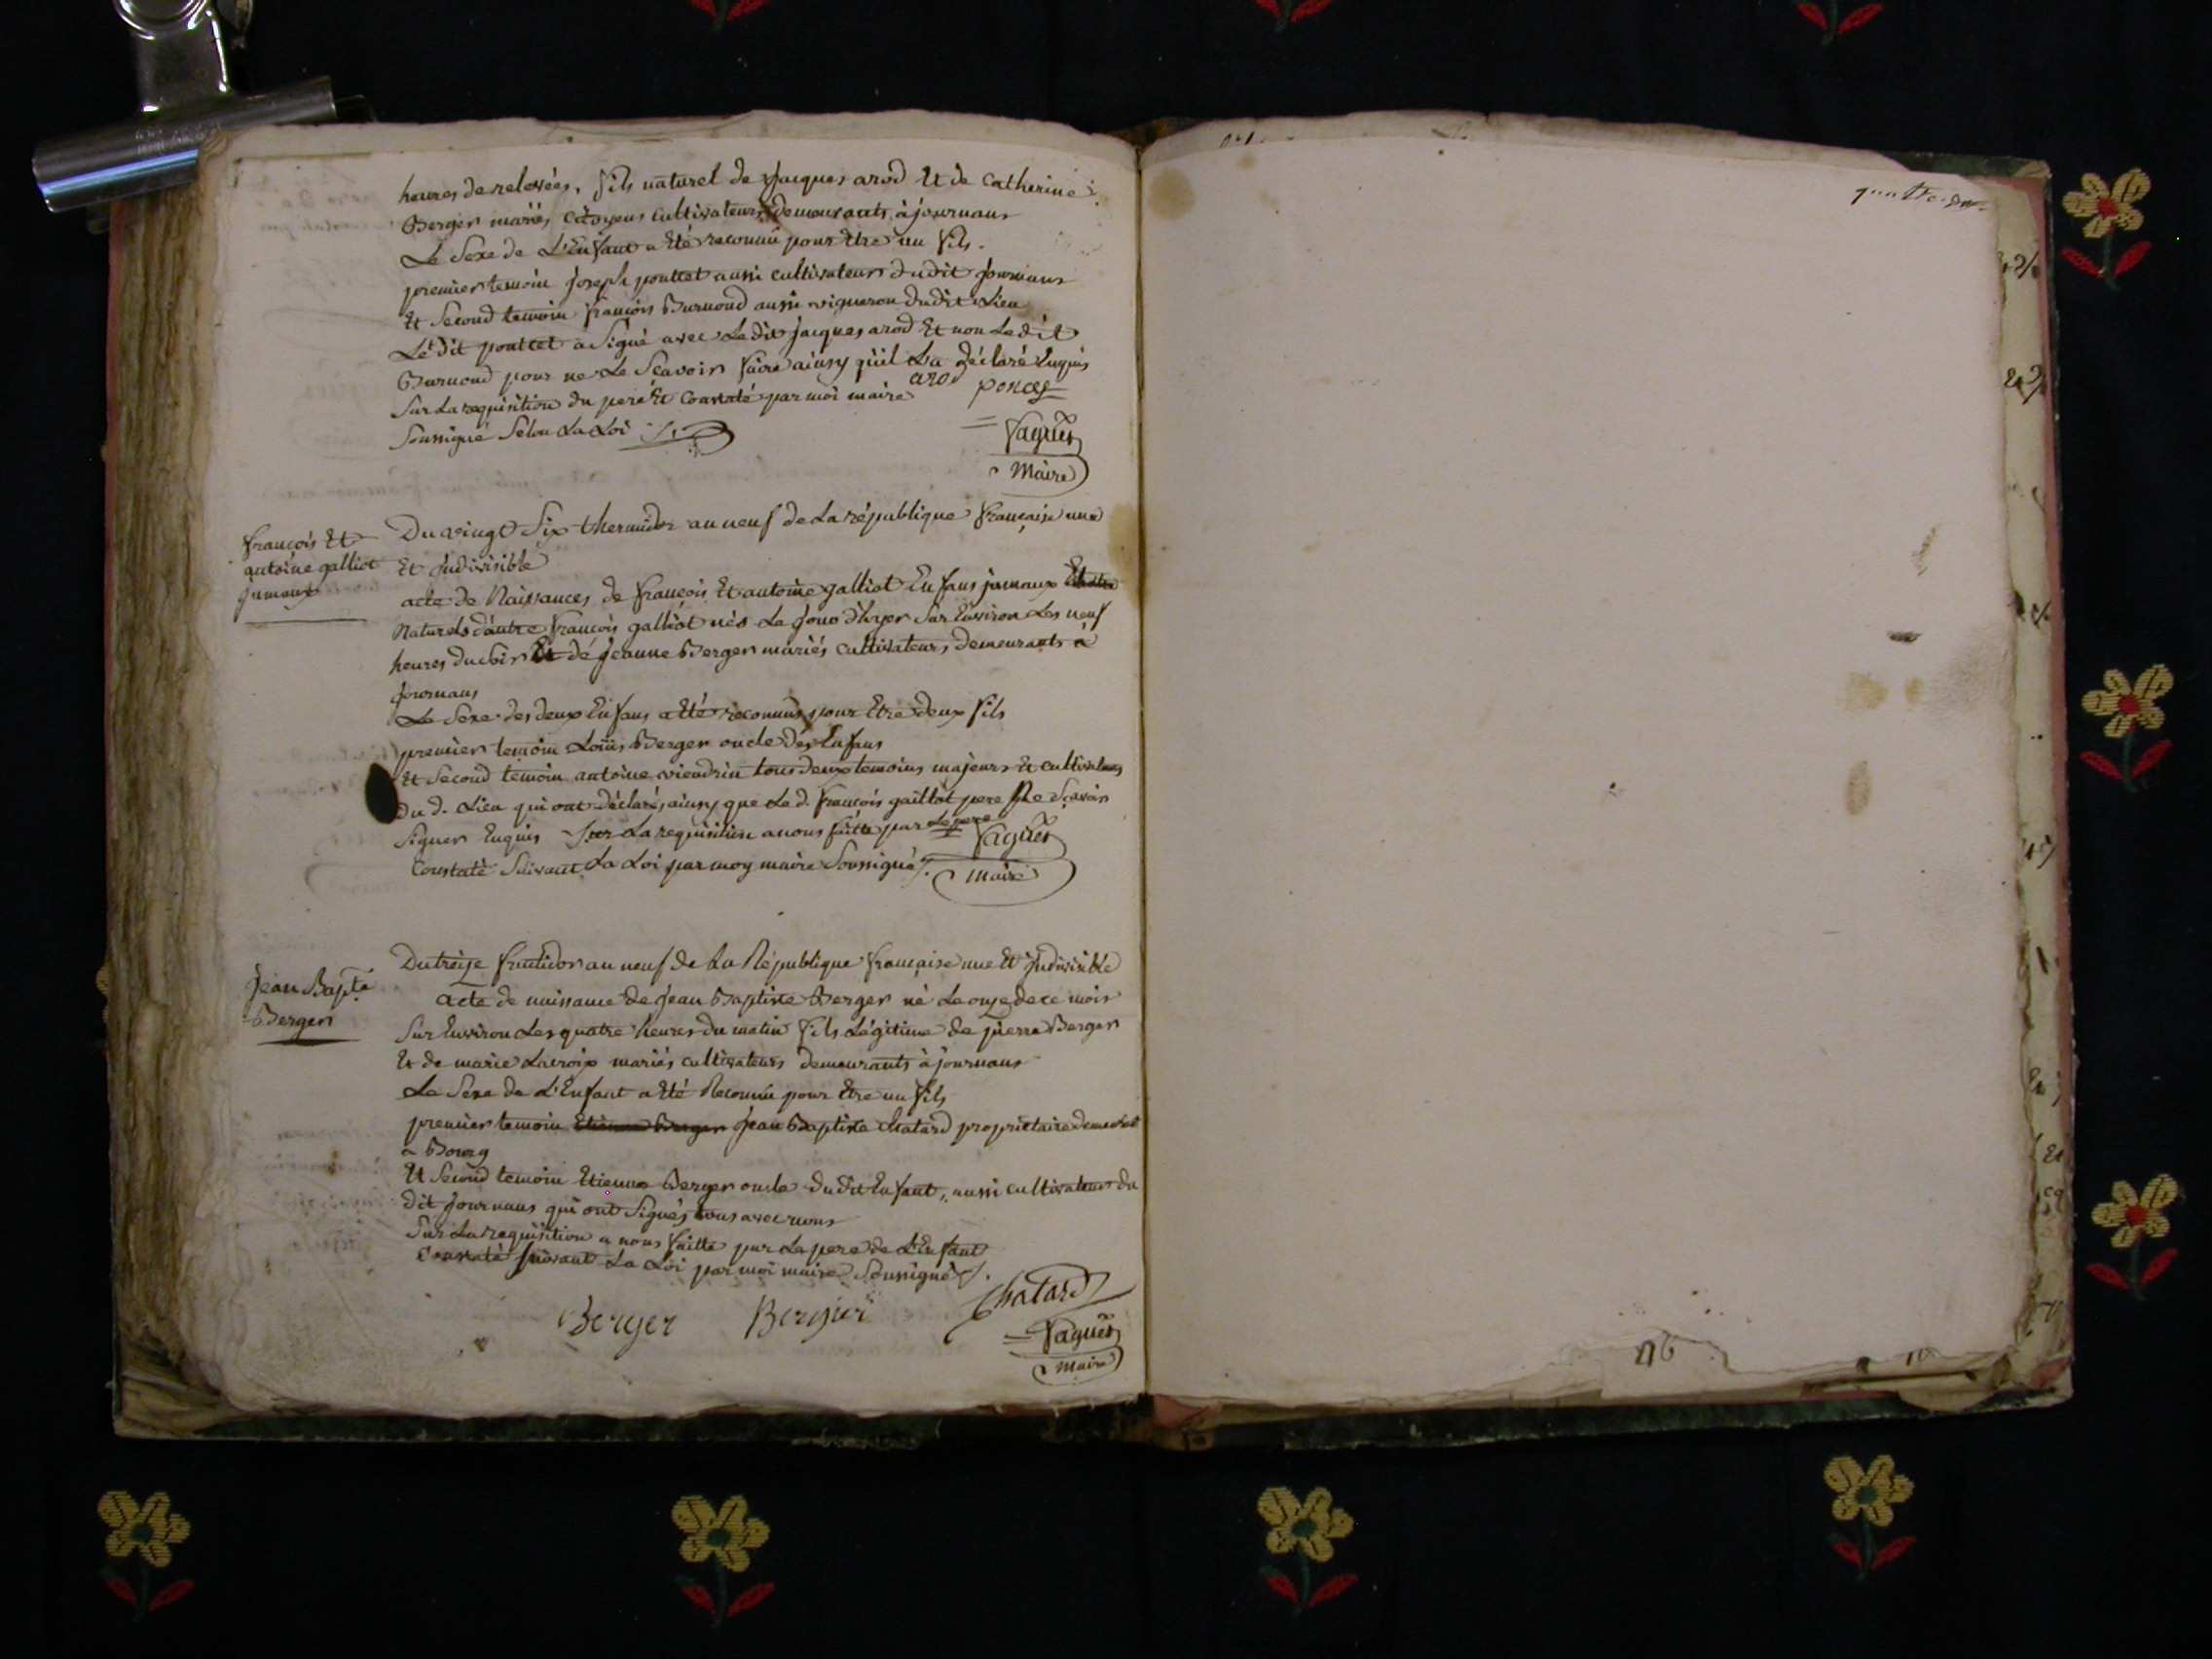 heures de relevées, fils naturel de Jacques arod Et de Catherine
Berger mariés citoyens cultivateurs demeurants à journans
Le Sexe de L'Enfant a Eté reconnû pour Etre un fils.
premier temoin joseph pouttet aussi cultivateur dudit journans
Et Second temoin françois Burnoud aussi vigneron dudit Lieu
Le dit pouttet a Signé avec Le dit jacques arod Et non Le dit
Burnoud pour ne Le Scavoir faire ainsy qu'il L'a déclaré Enquis
Sur La requisition du pere Et Constaté par moi maire
aro
Soussigné Selon La Loi
Vaguet
Maire
françois Et
antoine galliot
jumeaux
Du vingt Six thermidor an neuf de La république française une
Et jndivisible
acte de Naissances de françois Et antoine galliot Enfans jumeaux
Naturels d'autre françois galliot nés Le jour d'hyer Sur Environ Les neuf
heures du soir Et de jeanne Berger mariés cultivateurs demeurants à
journans
Le Sexe des deux Enfans a Eté reconnûs pour Etre deux fils
premier temoin Loüis Berger oncle des Enfans
Et Second temoin antoine viendrin tous deux temoins majeurs Et cultivateurs
du d. Lieu qui ont déclarés ainsy que Le d. françois galliot pere Ne Scavoir
Signer Enquis Sur La requisition a nous faitte par Le pere
Vaguet
Constaté Suivant La Loi par moy maire Soussigné
maire
Jean Bapte
Berger
Du treize fructidor an neuf de La République française une Et jndivisible
acte de naissance de jean Baptiste Berger né Le onze de ce mois
Sur Environ Les quatre heures du matin fils Légitime de pierre Berger
Et de marie Lacroix mariés cultivateurs demeurants à journans
Le Sexe de L'Enfant a Eté Reconnû pour Etre un fils
premier temoin Etienne Berger jean Baptiste Chatard proprietaire
a Bourg
Et Second temoin Etienne Berger oncle dudit Enfant, aussi cultivateur du
dit journans qui ont Signés tous avec nous
Sur La requisition a nous faitte par Le pere de L'Enfant
Constaté suivant La Loi par moi maire Soussigné
Berger Berger Chatard
Vaguet
Maire